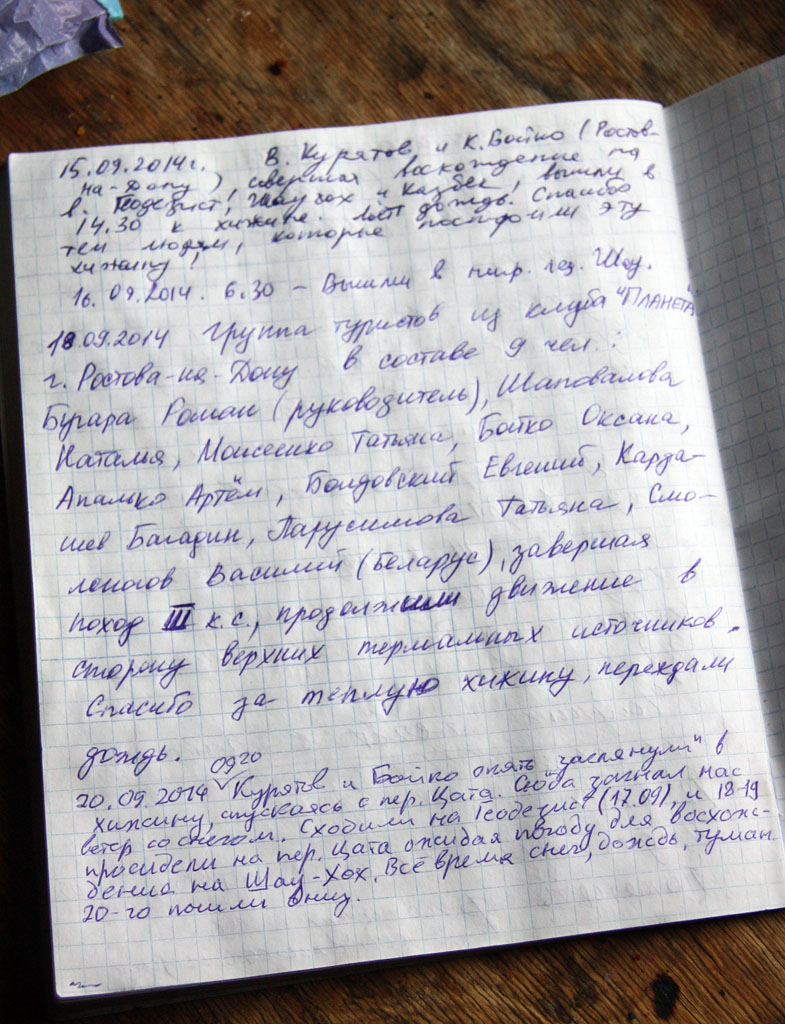 15.09.2014г. В. Курятов и К. Бойко (Ростов-
на-Дону), совершая восхождение на
в. Геодезист, Шаухох и Казбек, вышли в
14.30 к хижине. Льёт дождь. Спасибо
тем людям, которые построили эту
хижину!
16.09.2014. 6.30 – Вышли в напр. лед. Шау.
18.09.2014 Группа туристов из клуба "ПЛАНЕТА"
г. Ростова-на-Дону в составе 9 чел.:
Бугара Роман (руководитель), Шаповалова
Наталья, Моисеенко Татьяна, Бойко Оксана,
Апалько Артём, Болдовский Евгений, Карда-
шев Багадин, Парусимова Татьяна, Смо-
леногов Василий (Беларус), завершая
поход III к.с., продолжили движение в
сторону верхних термальных источников.
Спасибо за теплую хижину, переждали
дождь.
20.09.2014 09 20 Курятов и Бойко опять "заглянули" в
хижину, спускаясь с пер. Цата. Сюда загнал нас
ветер со снегом. Сходили на Геодезист (17.09), и 18-19
просидели на пер. Цата ожидая погоду для восхож-
дения на Шау-Хох. Всё время снег, дождь, туман.
20-го пошли вниз.